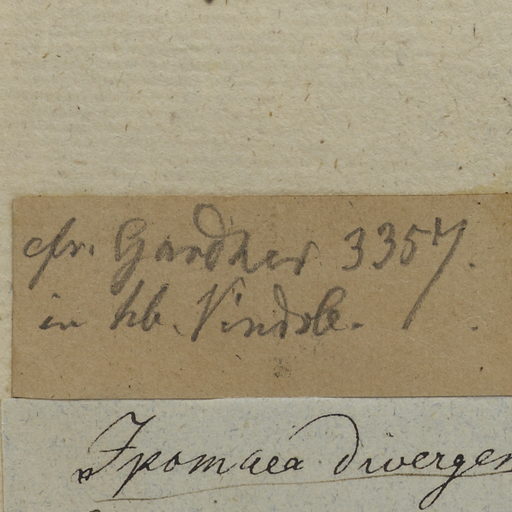 cfr. Gardner 3357.
in hb. Vindob.
Ipomaea divergen